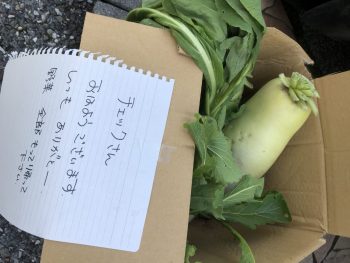 チェックさん
おはようございます
いつも ありがとー
野菜 全部 もって帰って
下さい